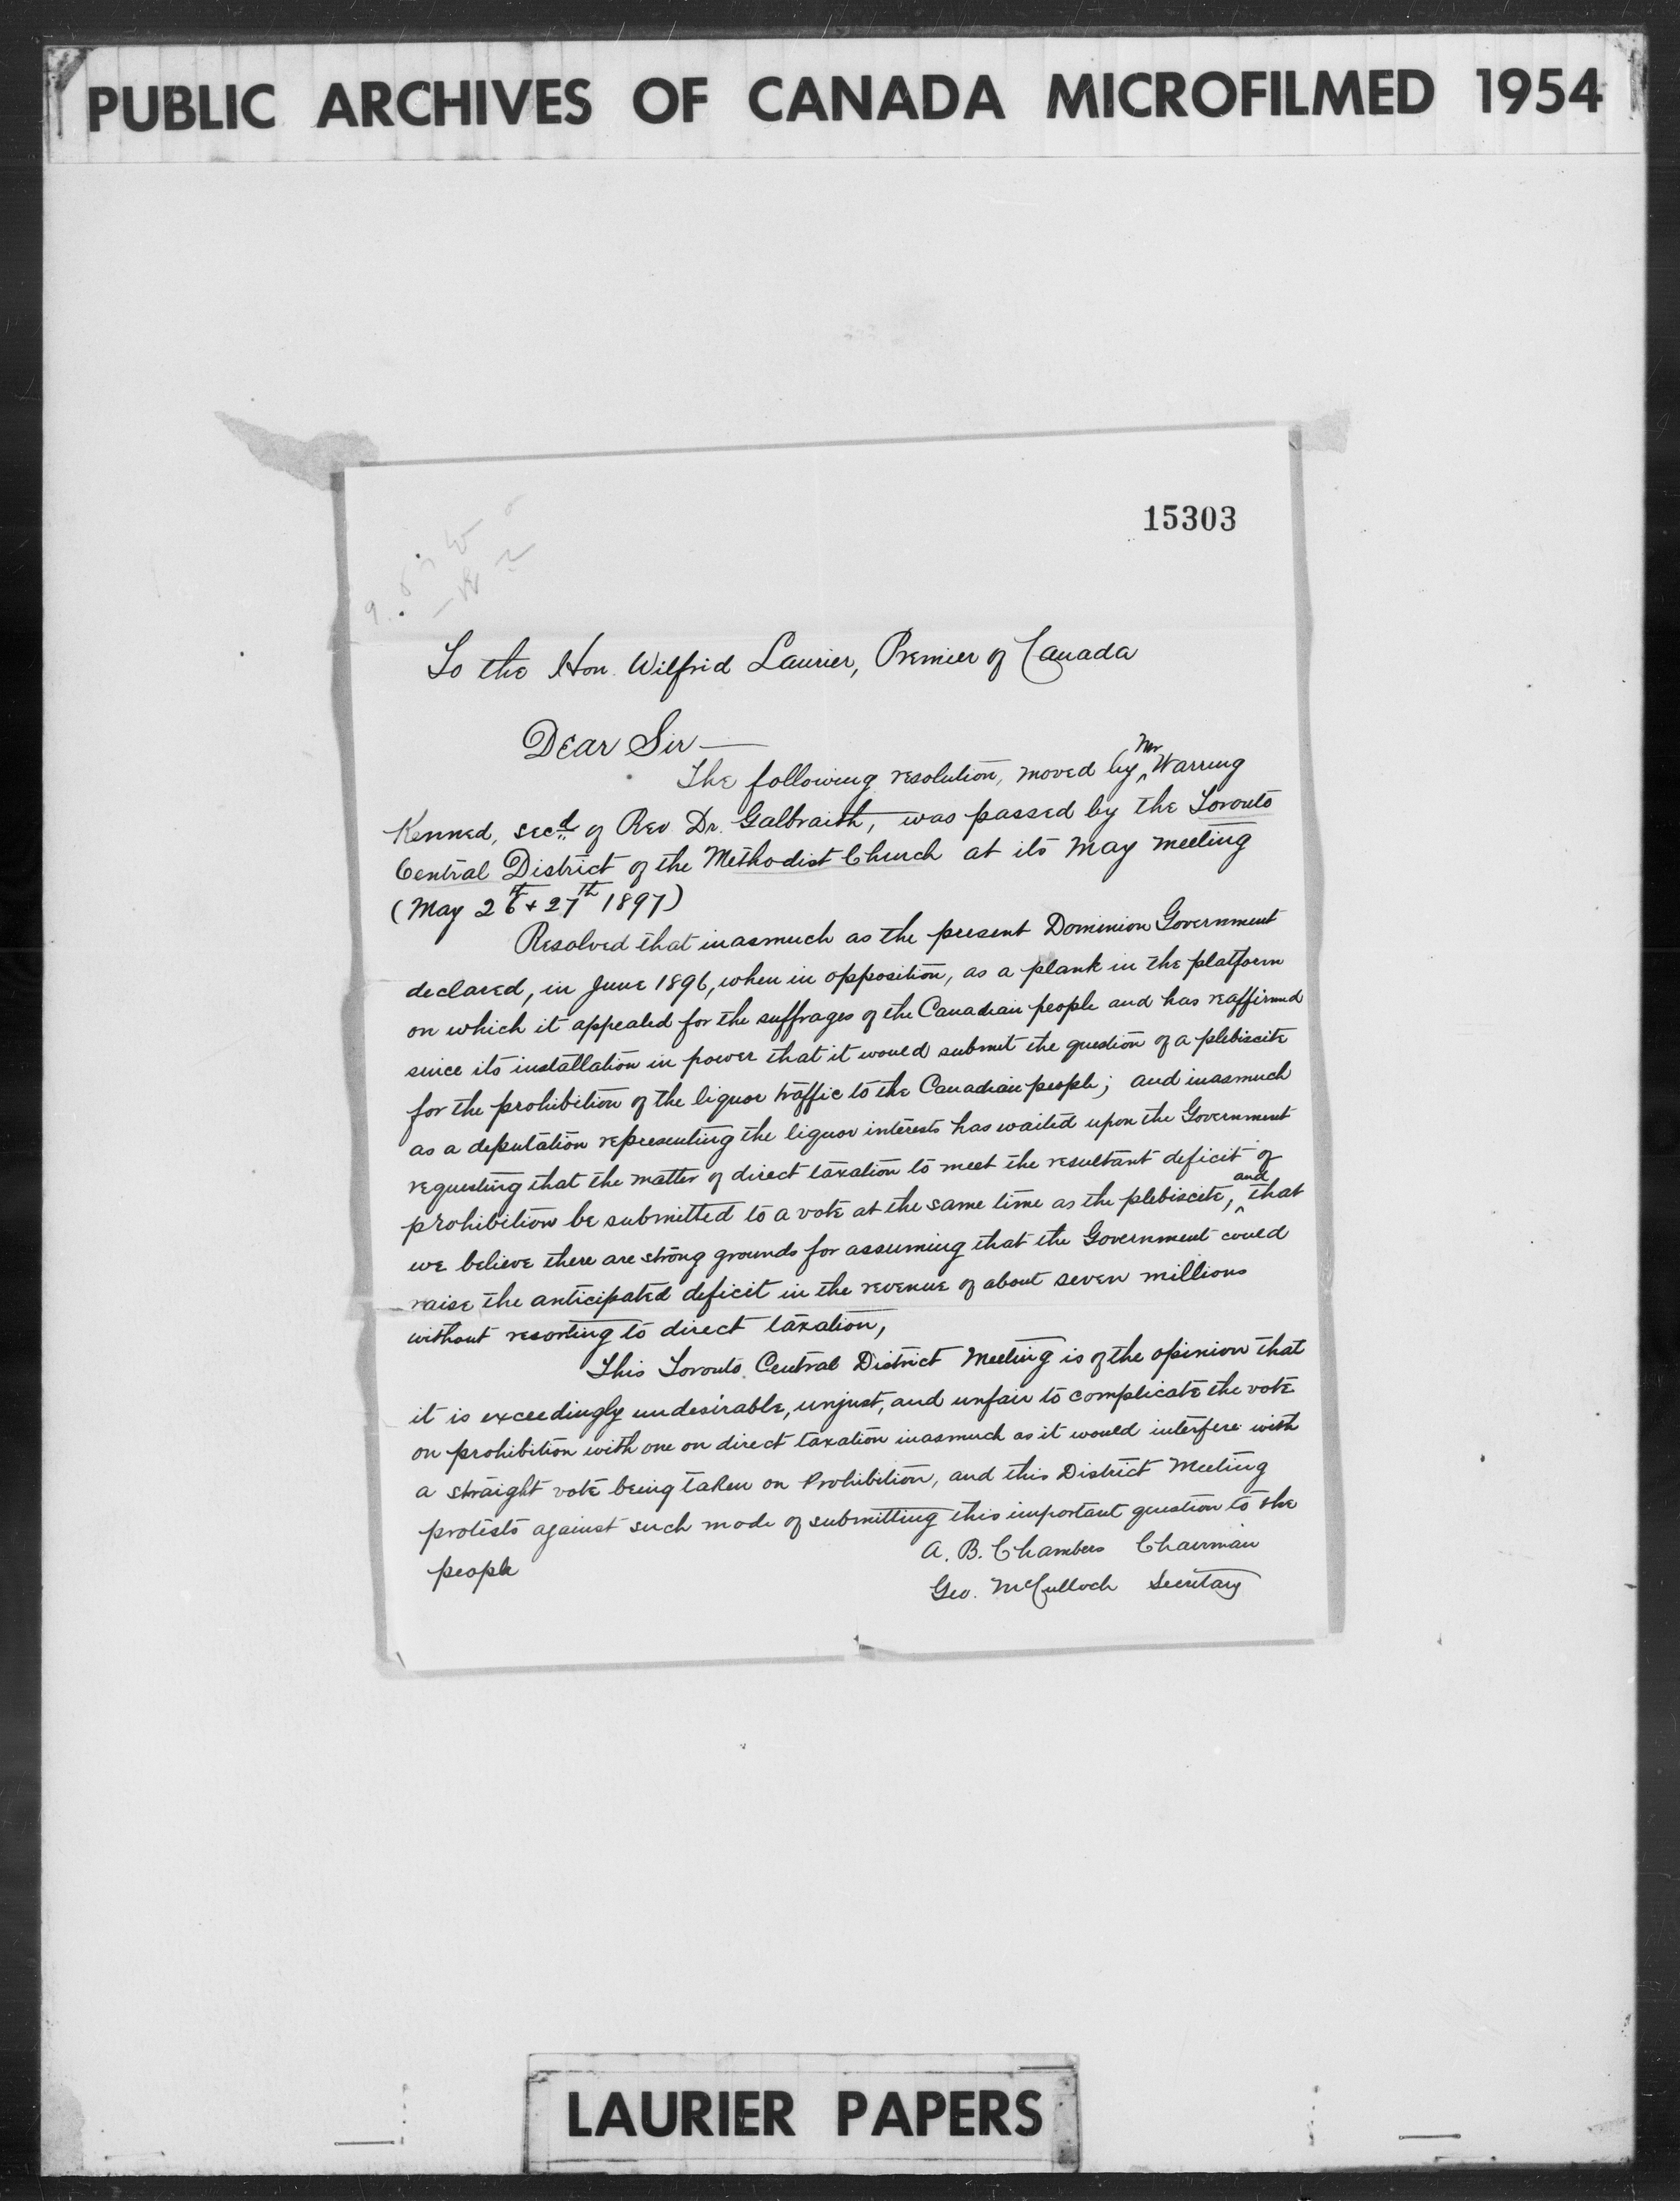 PUBLIC ARCHIVES OF CANADA MICROFILMED 1954
15303
To the Hon. Wilfrid Laurier, Premier of Canada
Dear Sir —
The following resolution, moved by Mr Warring
Kenned, secd of Rev. Dr. Galbraith, was passed by the Toronto
Central District of the Methodist Church at its May meeting
(May 26th + 27th 1897)
Resolved that inasmuch as the present Dominion Government
declared, in June 1896, when in opposition, as a plank in the platform
on which it appealed for the suffrages of the Canadian people and has reaffirmed
since its installation in power that it would submit the question of a plebiscite
for the prohibition of the liquor traffic to the Canadian people; and inasmuch
as a deputation representing the liquor interests has waited upon the Government
requesting that the matter of direct taxation to meet the resultant deficit of
prohibition be submitted to a vote at the same time as the plebiscite, and that
we believe there are strong grounds for assuming that the Government could
raise the anticipated deficit in the revenue of about seven millions
without resorting to direct taxation,
This Toronto Central District Meeting is of the opinion that
it is exceedingly undesirable, unjust, and unfair to complicate the vote
on prohibition with one on direct taxation inasmuch as it would interfere with
a straight vote being taken on Prohibition, and this District Meeting
protests against such mode of submitting this important question to the
people
A. B. Chambers Chairman
Geo. McCulloch Secretary
LAURIER PAPERS